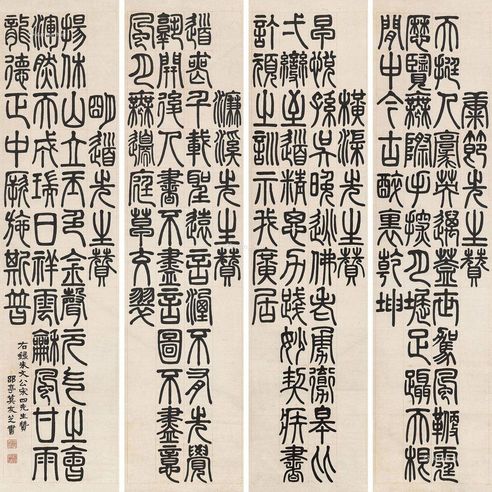 康節先生贊
天挺人豪英邁蓋世駕風鞭霆
歷覽無際手探月窟足躡天根
閒中今古醉裏乾坤
橫渠先生贊
早悅孫吳晚逃佛老勇撤皋比
弌變至道精思力踐妙契疾書
訂頑之訓示我廣居
濂溪先生贊
道喪千載聖遠言湮不有先覺
孰開後人書不盡言圖不盡意
風月無邊庭草交翠
明道先生贊
揚休山立玉色金聲元气之會
渾然天成瑞日祥雲龢風甘雨
龍德正中厥施斯普
右錄朱文公宋四先生贊
郘亭莫友芝書